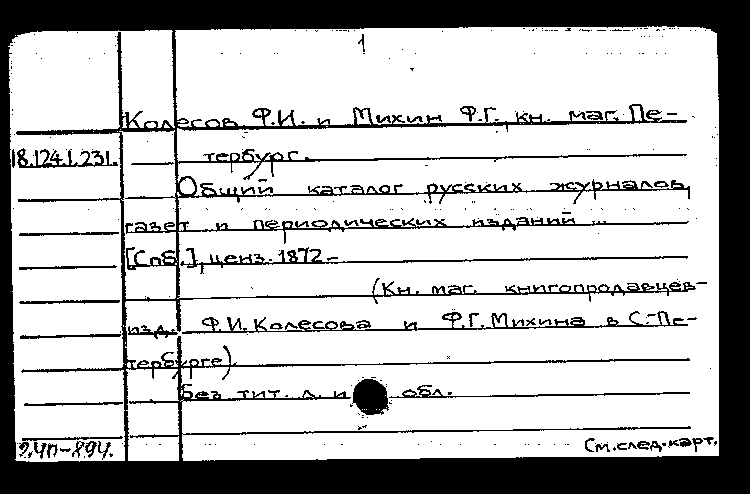 1
Колесов Ф.И. и Михин Ф.Г., кн. маг. Пе-
18.124.1.231. тербург.
Общий каталог русских журналов,
газет и периодических изданий ...
[Спб.], ценз. 1872-
(Кн. маг. книгопродавцев-
изд. Ф.И. Колесова и Ф.Г. Михина в С.-Пе-
тербурге).
Без тит. л. и обл.
См.след.карт.